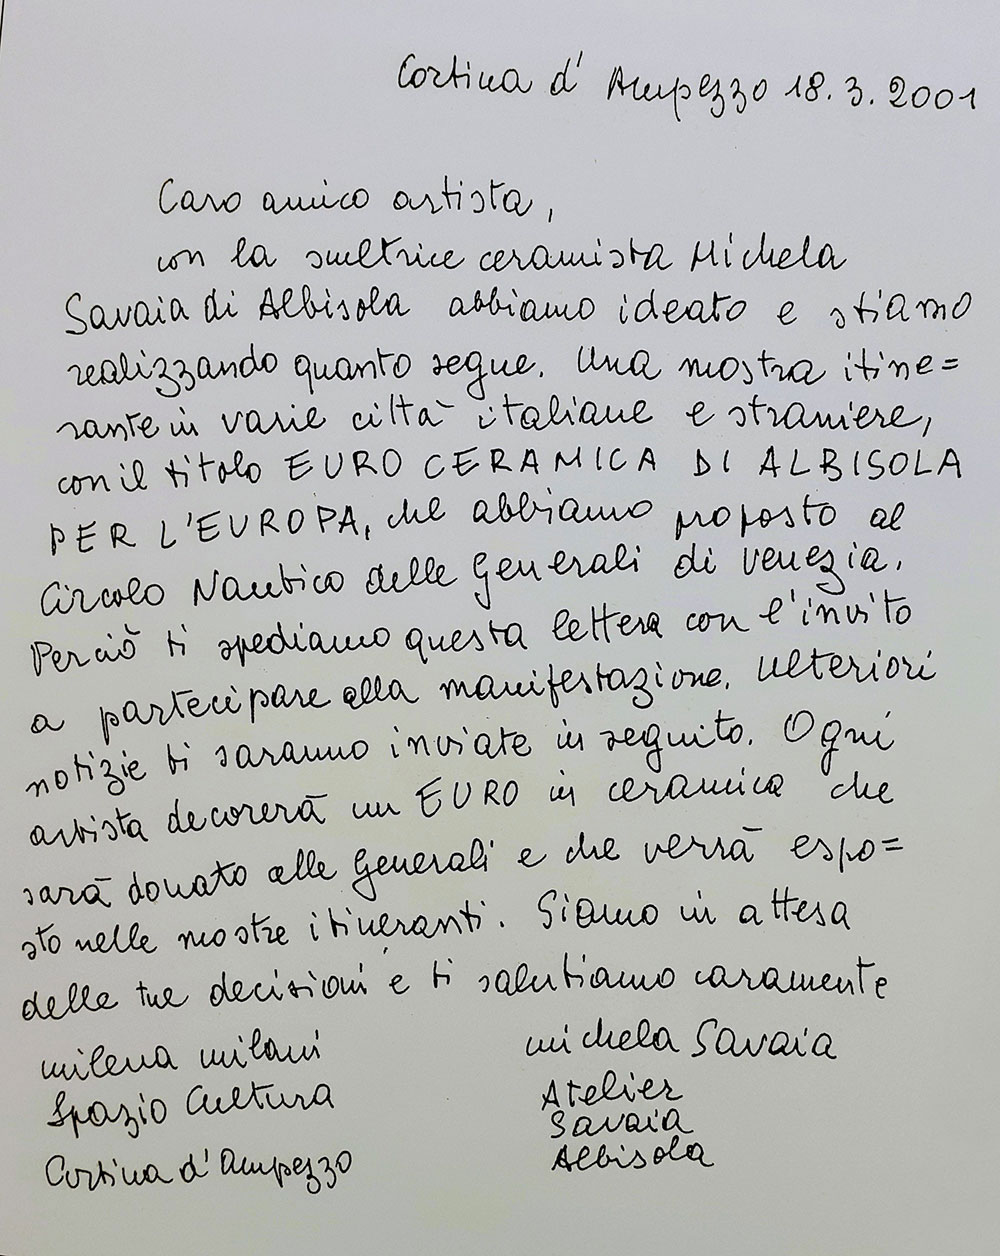 Cortina d'Ampezzo 18.3.2001
Caro amico artista,
con la scultrice ceramista Michela
Savaia di Albisola abbiamo ideato e stiamo
realizzando quanto segue. Una mostra itine=
rante in varie città italiane e straniere,
con il titolo EURO CERAMICA DI ALBISOLA
PER L'EUROPA, che abbiamo proposto al
Circolo Nautico delle Generali di Venezia.
Perciò ti spediamo questa lettera con l'invito
a partecipare alla manifestazione. Ulteriori
notizie ti saranno inviate in seguito. Ogni
artista decorerà un EURO in ceramica che
sarà donato alle Generali e che verrà espo=
sto nelle mostre itineranti. Siamo in attesa
delle tue decisioni e ti salutiamo caramente
milena milani michela Savaia
Spazio Cultura Atelier
Savaia
Cortina d'Ampezzo Albisola